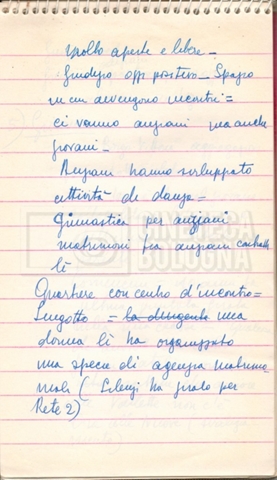 molto aperte e libere -
giudizio opp positivo - Spazio
in cui avvengono incontri =
ci vanno anziani ma anche
giovani -
Anziani hanno sviluppato
attività di danza =
ginnastica per anziani
matrimoni fra anziani
lì
Quartiere con centro d'incontro =
Lingotto = la dirigente una
donna lì ha organizzato
una specie di agenzia matrimo
niale ( ha girato per
Rete 2)
CINETECA
BOLOGNA